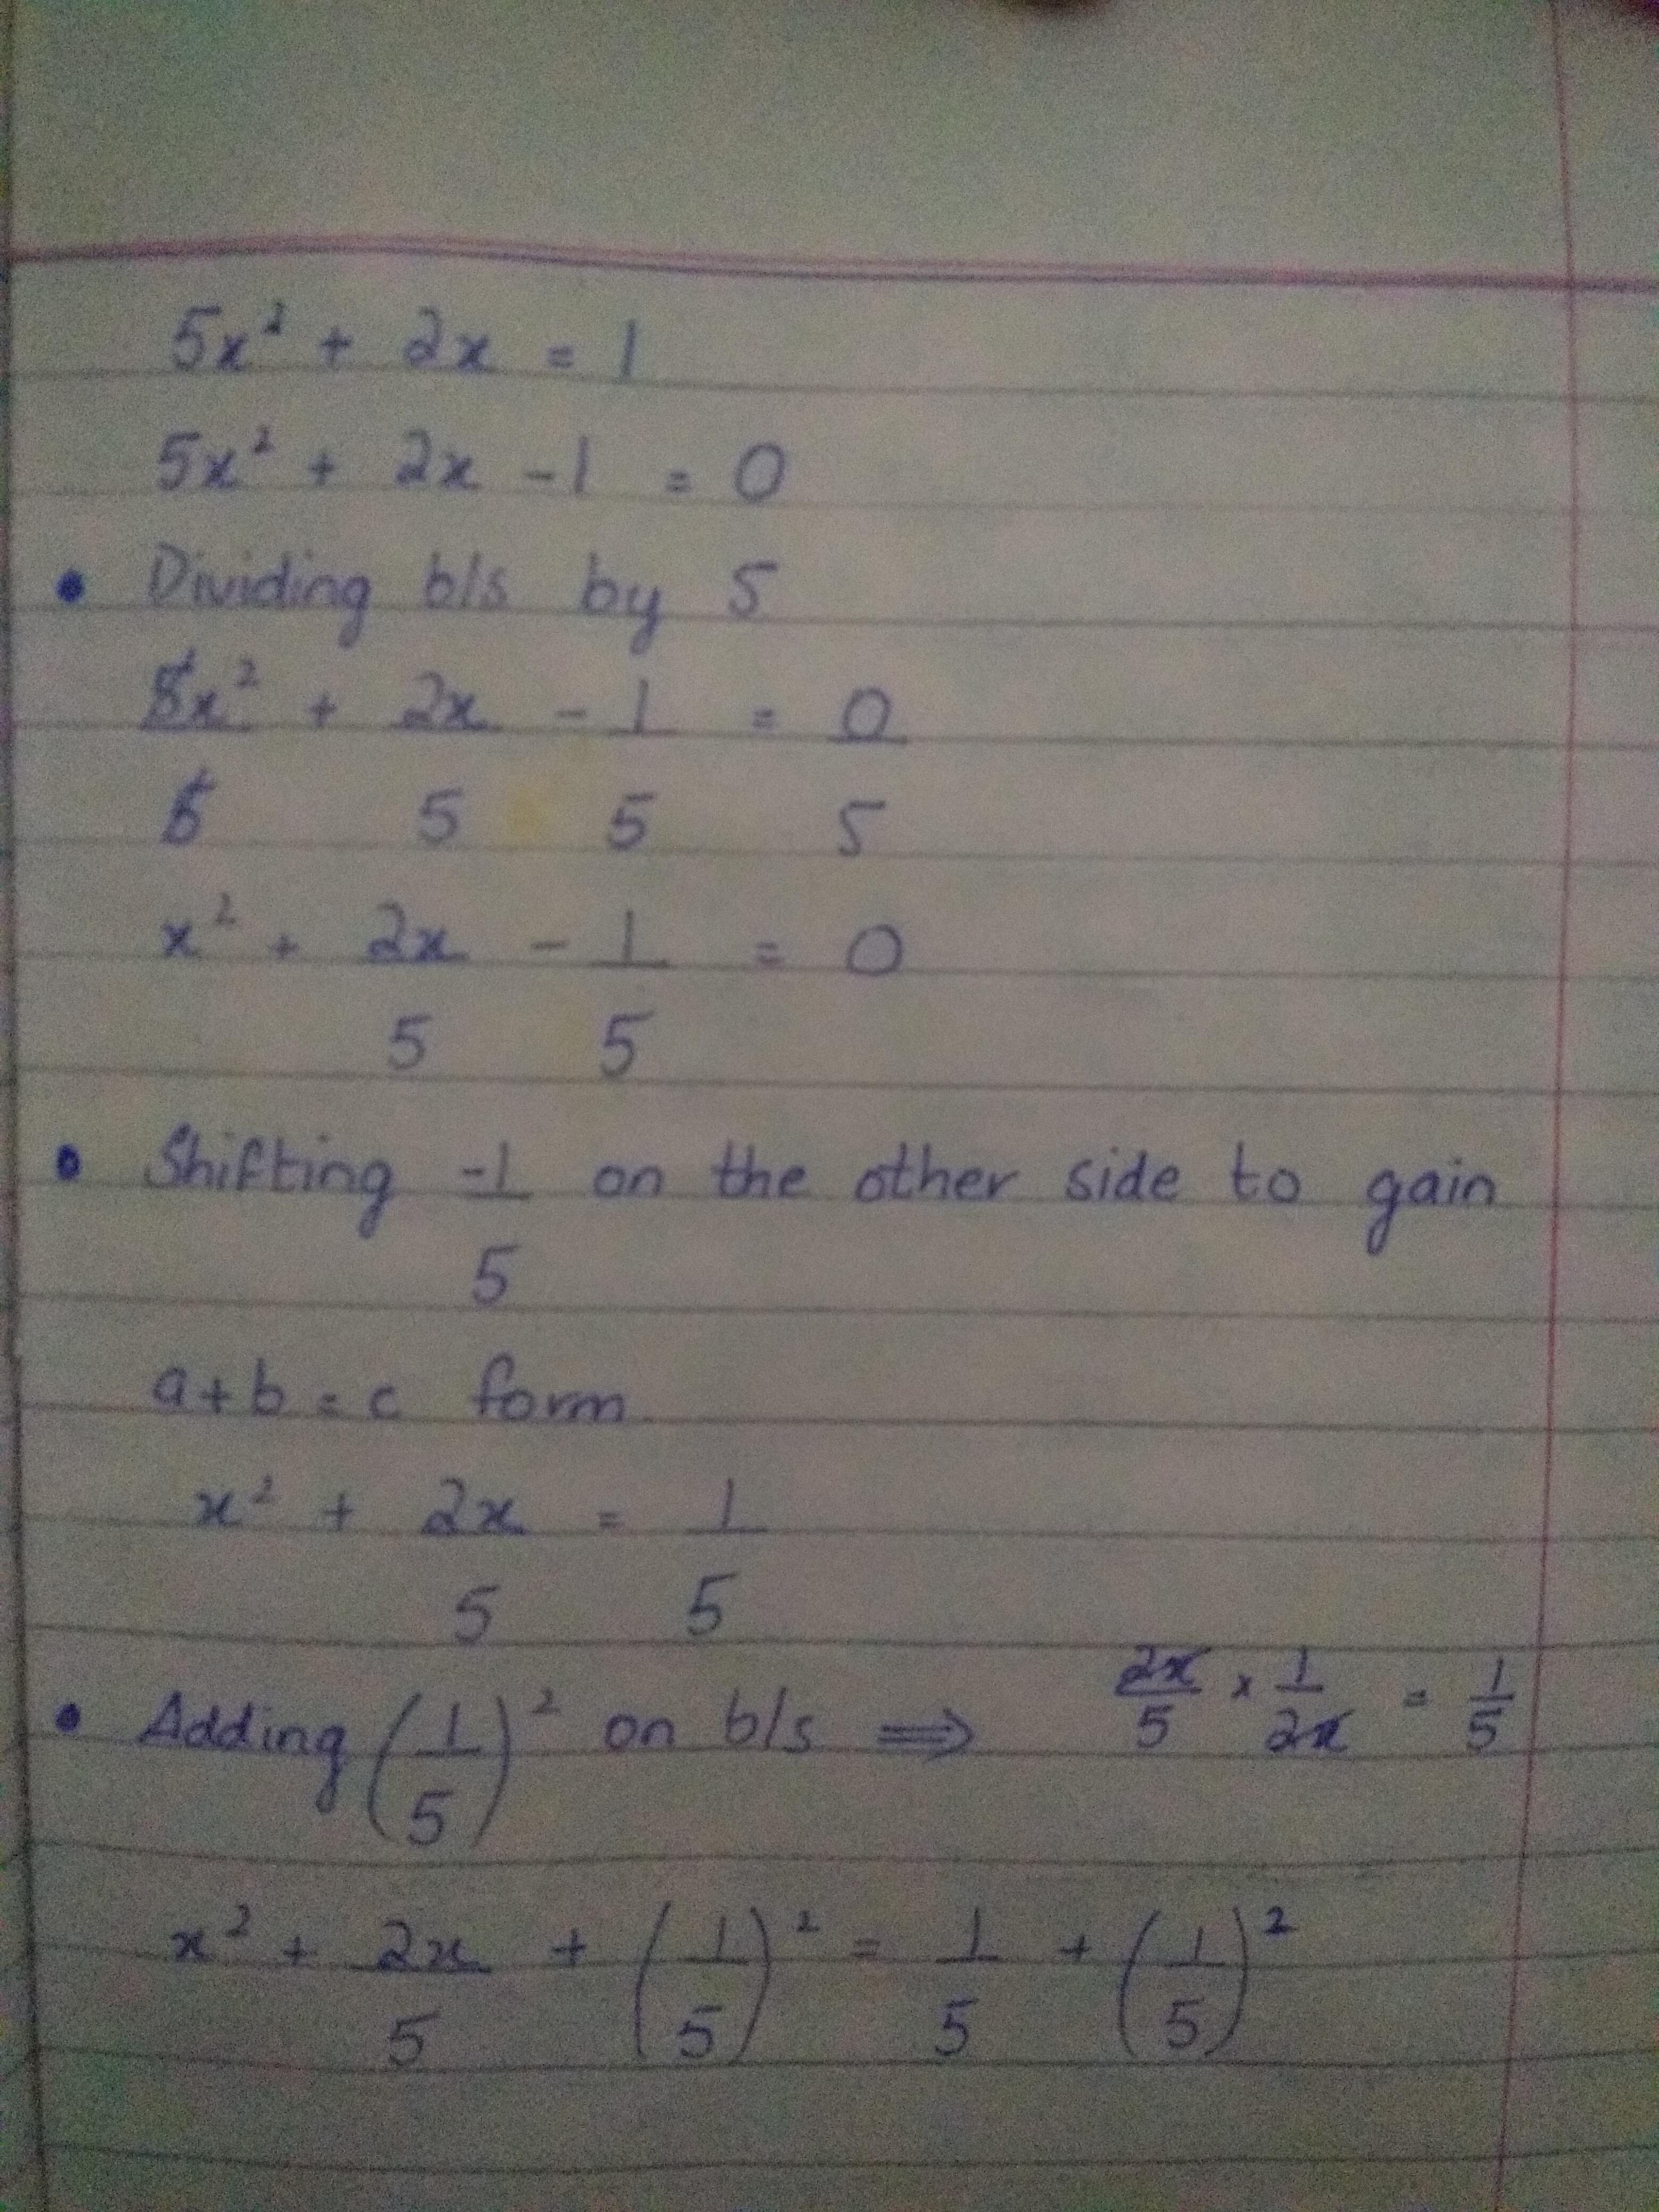 5x² + 2x = 1
5x² + 2x - 1 = 0
• Dividing b/s by 5
5x²/5 + 2x/5 - 1/5 = 0/5
x² + 2x/5 - 1/5 = 0
• Shifting -1/5 on the other side to gain
a + b = c form
x² + 2x/5 = 1/5
• Adding (1/5)² on b/s ⟹ 2x/5 × 1/2x = 1/5
x² + 2x/5 + (1/5)² = 1/5 + (1/5)²